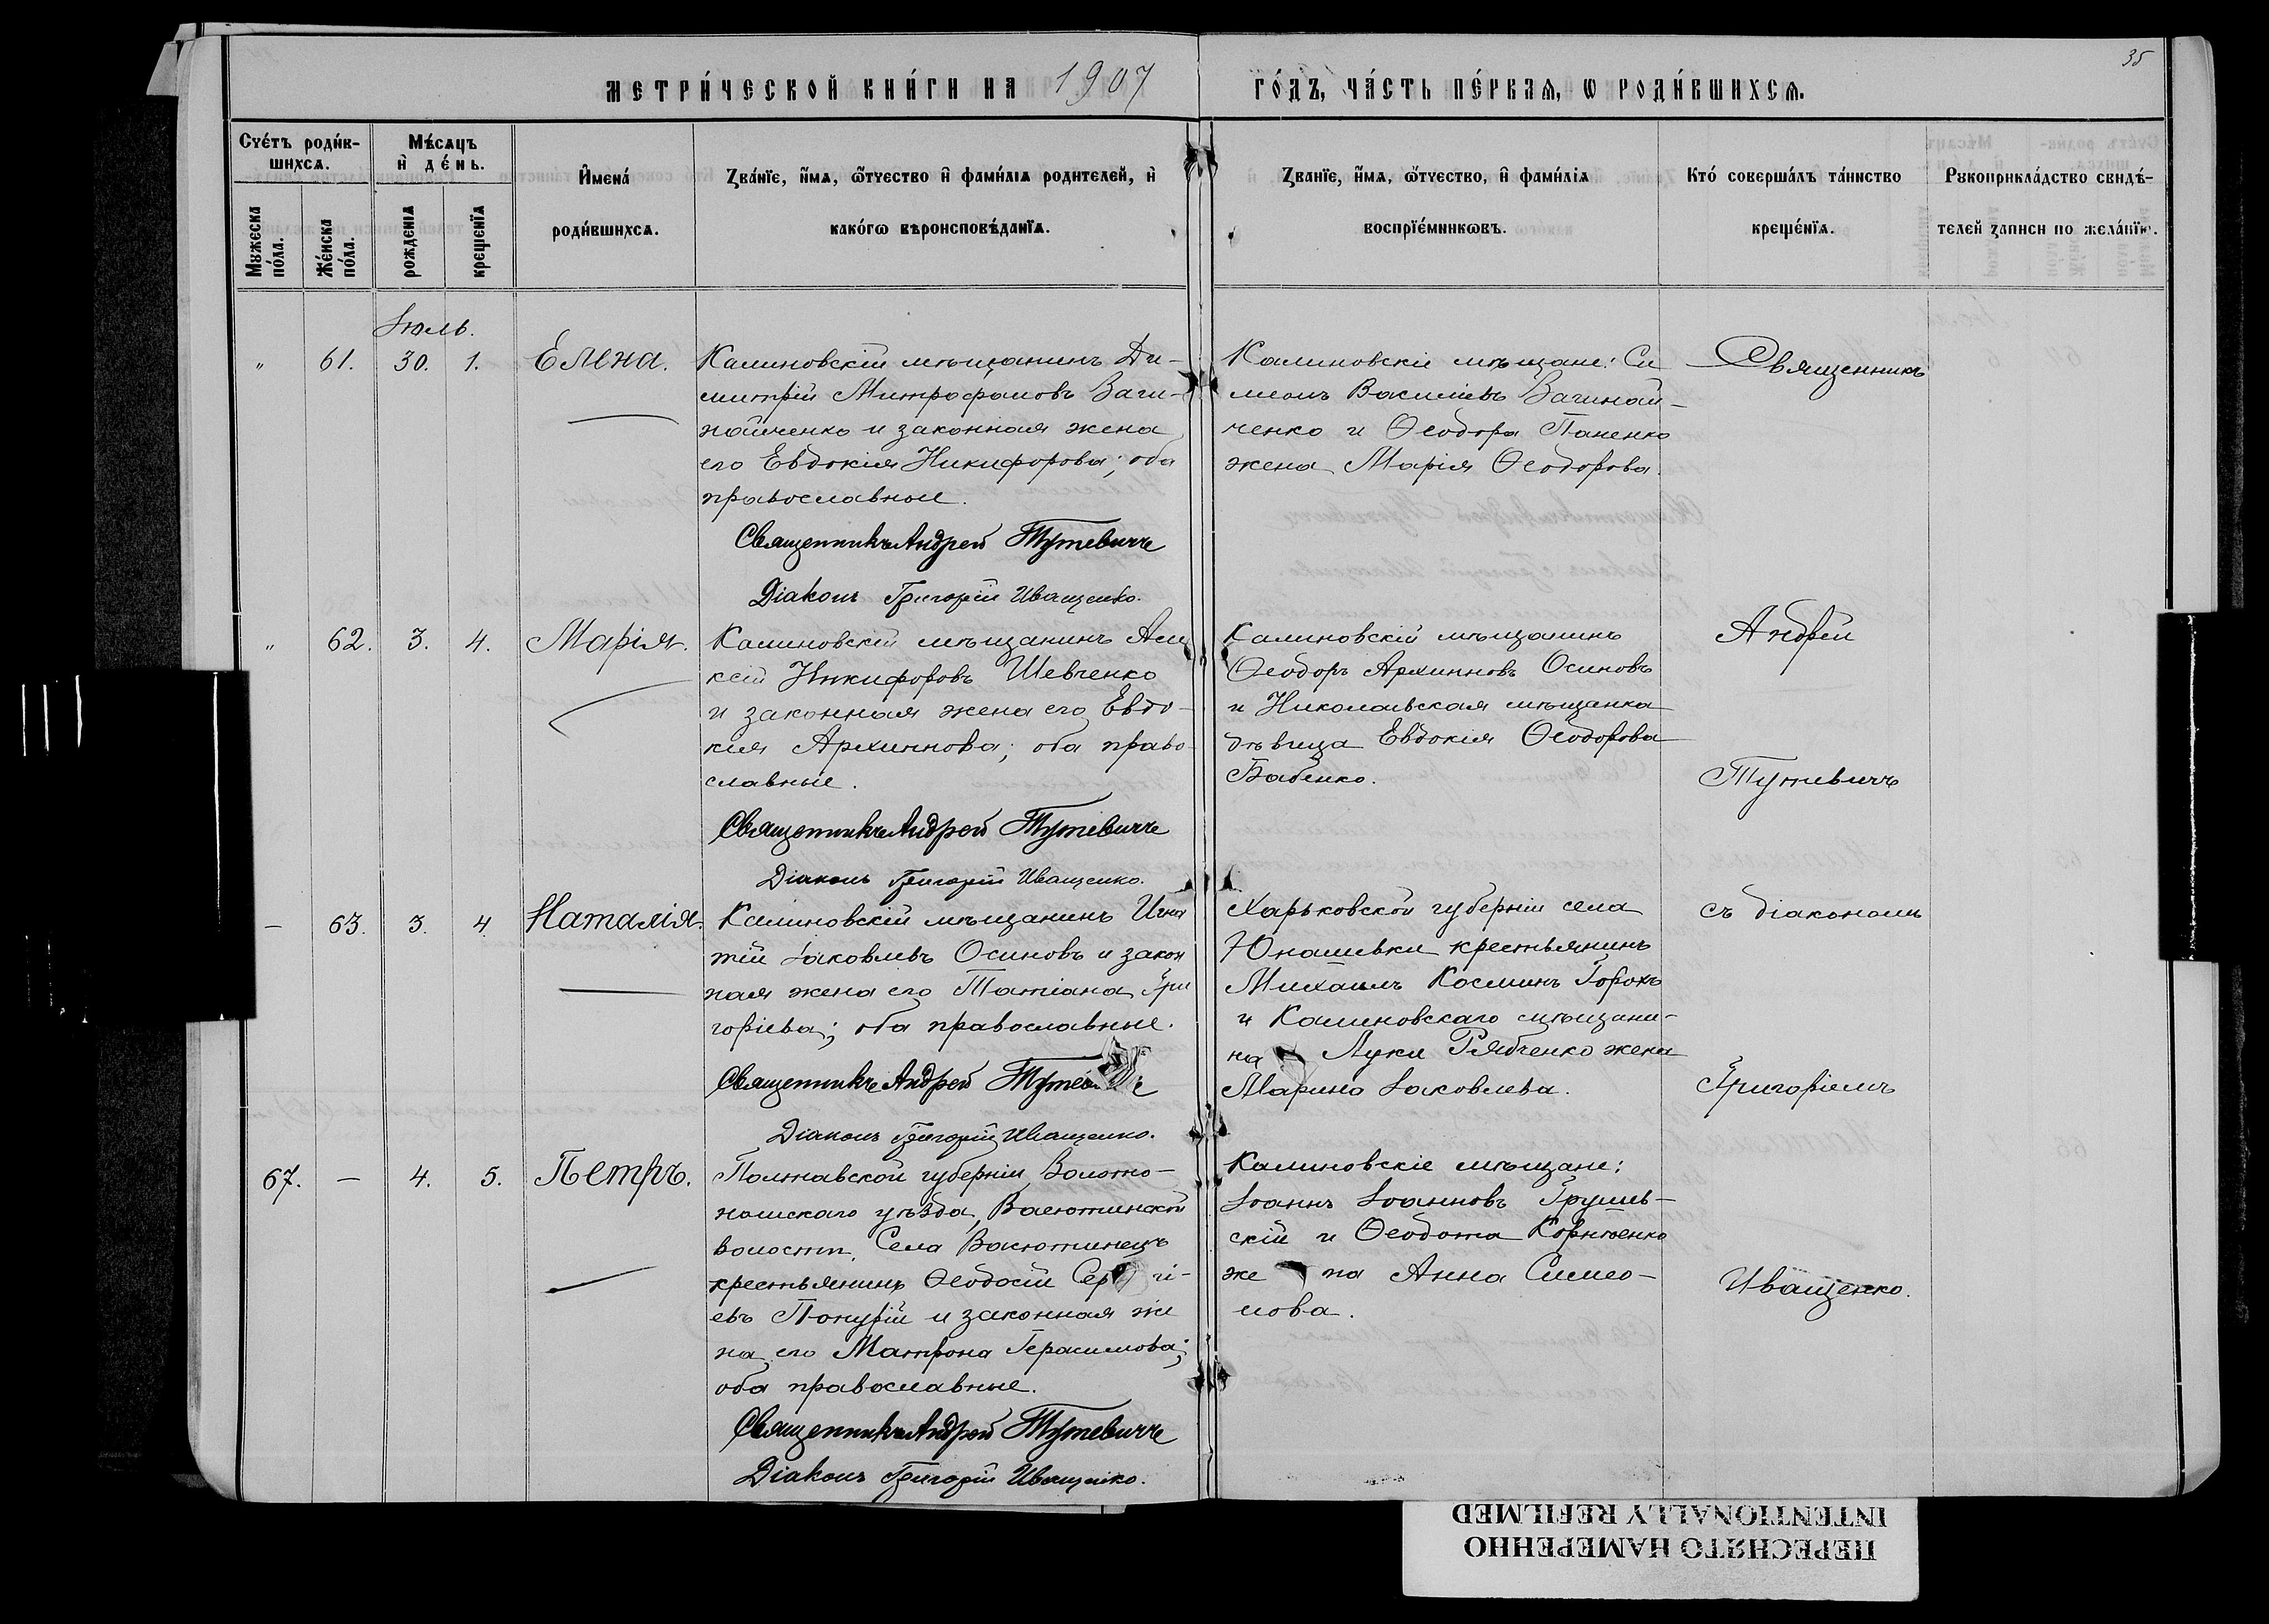 35
МЕТРИ́ЧЕСКОЙ КНИ́ГИ НА 1907 ГО́ДЪ, ЧА́СТЬ ПЕ́РВАѦ, Ѡ РОДИ́ВШИХСѦ.
Сче́тъ роди́в-
шихсѧ.
Мꙋжеска по́ла.
Же́нска по́ла.
Мѣ́сѧцъ
и҆ де́нь.
рожденіѧ
крещенїѧ
И҆мена́
роди́вшихсѧ.
Зва́нїе, и҆́мѧ, ѻ҆́тчество и҆ фами́лїа родителей, и҆
како́гѡ вѣроисповѣ́данїѧ.
Зва́нїе, и҆́мѧ, ѻ҆́тчество, и҆ фами́лїѧ
воспрїе́мникѡвъ.
Кто́ соверша́лъ та́инство
креще́нїѧ.
Рꙋкоприкла́дство свидѣ́-
телей записи по жела́нїю.
Іюль.
" 61. 30. 1. Елена.
Калиновскій мѣщанинъ Ди-
митрій Митрофановъ Ваги-
нойченко и законная жена
его Евдокія Никифорова; оба
православные.
Священникъ Андрей Тутевичъ
Діаконъ Григорій Иващенко.
Калиновскіе мѣщане: Си
меонъ Василіевъ Вагиной-
ченко и Ѳеодора Паненко
жена Марія Ѳеодорова.
Священникъ
" 62. 3. 4. Марія.
Калиновскій мѣщанинъ Але
ксій Никифоровъ Шевченко
и законная жена его Евдо-
кія Архиппова; оба право-
славные.
Священникъ Андрей Тутевичъ
Діаконъ Григорій Иващенко.
Калиновскій мѣщанинъ
Ѳеодоръ Архипповъ Осиповъ
и Николаевская мѣщанка
дѣвица Евдокія Ѳеодорова
Бабенко.
Андрей
Тутевичъ
— 63. 3. 4 Наталія.
Калиновскій мѣщанинъ Игна
тій Іаковлевъ Осиповъ и закон
ная жена его Татіана Гри
горіева; оба православные.
Священникъ Андрей
Діаконъ Григорій Иващенко.
Харьковской губерніи села
Юнашевки крестьянинъ
Михаилъ Косминъ Горохъ
и Калиновскаго мѣщани-
на Луки Рябченко жена
Марина Іаковлева.
съ діакономъ
Григоріемъ
67. — 4. 5. Петръ.
Полтавской губерніи Золото-
ношскаго уѣзда, Васютинской
волости, Села Васютинецъ
крестьянинъ Ѳеодосій Сер гі-
евъ Понурій и законная же
на его Матрона Герасимова;
оба православные.
Священникъ Андрей Тутевичъ
Діаконъ Григорій Иващенко.
Калиновскіе мѣщане:
Іоаннъ Іоанновъ Грушев-
скій и Ѳеодота Корніенко
же на Анна Симео-
нова.
Иващенко.
ПЕРЕСНЯТО НАМЕРЕННО
INTENTIONALLY REFILMED